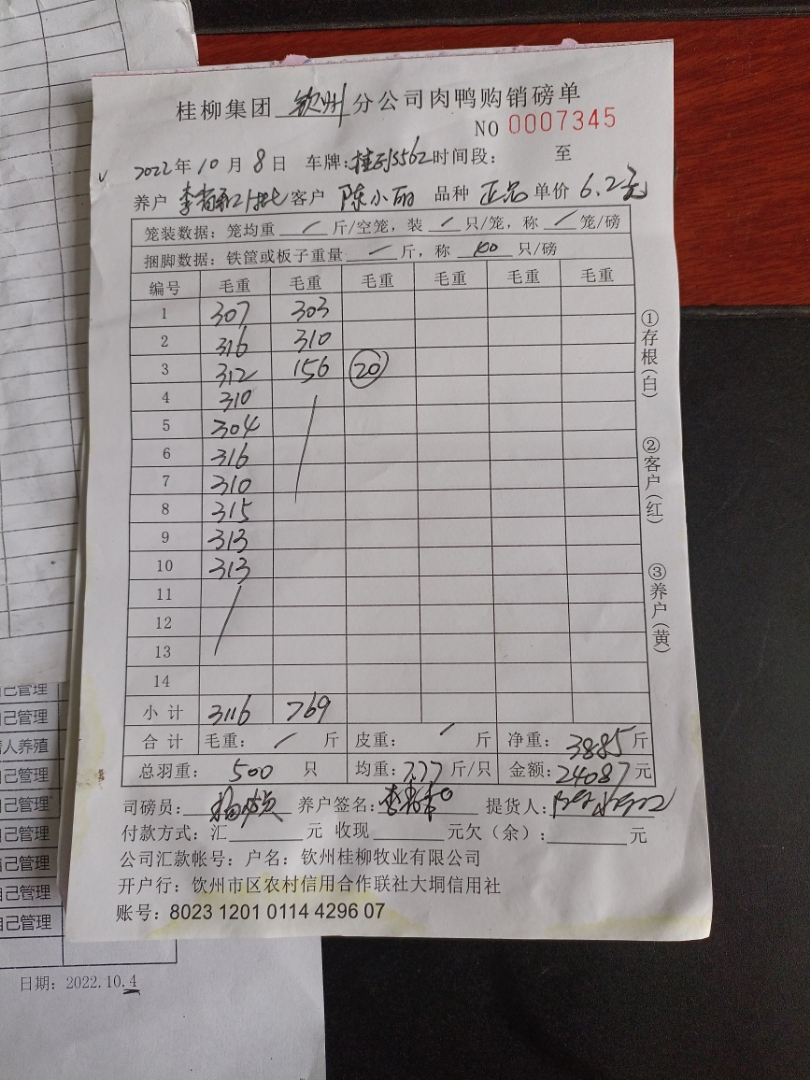 桂柳集团 钦州 分公司肉鸭购销磅单
NO 0007345
2022年10月8日 车牌: 时间段: 至
养户 客户 陈小丽 品种 正品 单价 6.2元
笼装数据: 笼均重 / 斤/空笼, 装 / 只/笼, 称 / 笼/磅
捆脚数据: 铁筐或板子重量 / 斤, 称 100 只/磅
编号 毛重 毛重 毛重 毛重 毛重 毛重
1 307 303
2 316 310
3 312 156 20
4 310
5 304
6 316
7 310
8 315
9 313
10 313
11
12
13
14
小计 3116 769
合计 毛重: / 斤 皮重: / 斤 净重: 3885斤
总羽重: 500 只 均重: 7.77斤/只 金额: 24087元
司磅员: 养户签名: 提货人:
付款方式: 汇 元 收现 元欠(余): 元
公司汇款帐号: 户名: 钦州桂柳牧业有限公司
开户行: 钦州市区农村信用合作联社大垌信用社
账号: 8023 1201 0114 4296 07
①存根(白)
②客户(红)
③养户(黄)
自己管理
自己管理
人养殖
自己管理
自己管理
自己管理
自己管理
自己管理
自己管理
日期: 2022.10.4